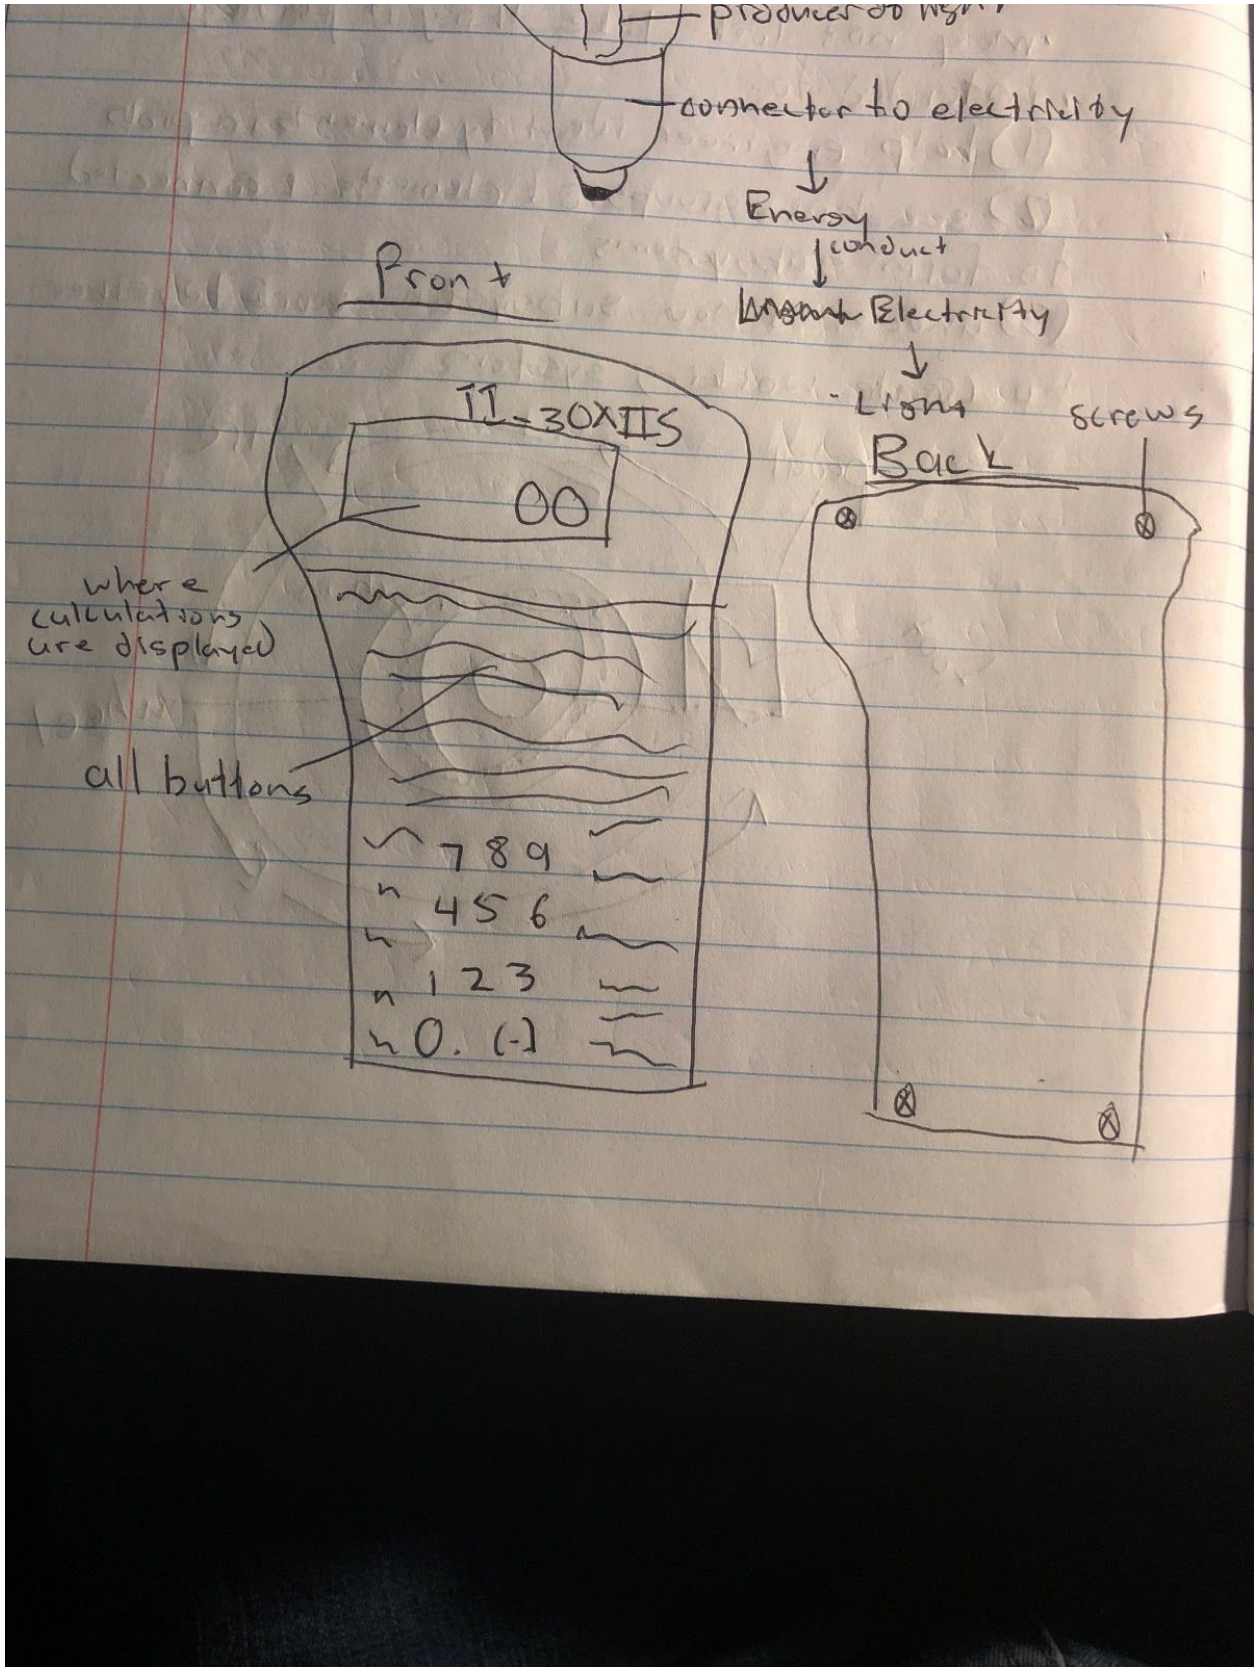 producer of light
connector to electricity
↓
Energy
↓ conduct
Electricity
↓
Light
Front
TI-30XIIS
00
where
calculations
are displayed
all buttons
7 8 9
4 5 6
1 2 3
0 . (-)
screws
Back